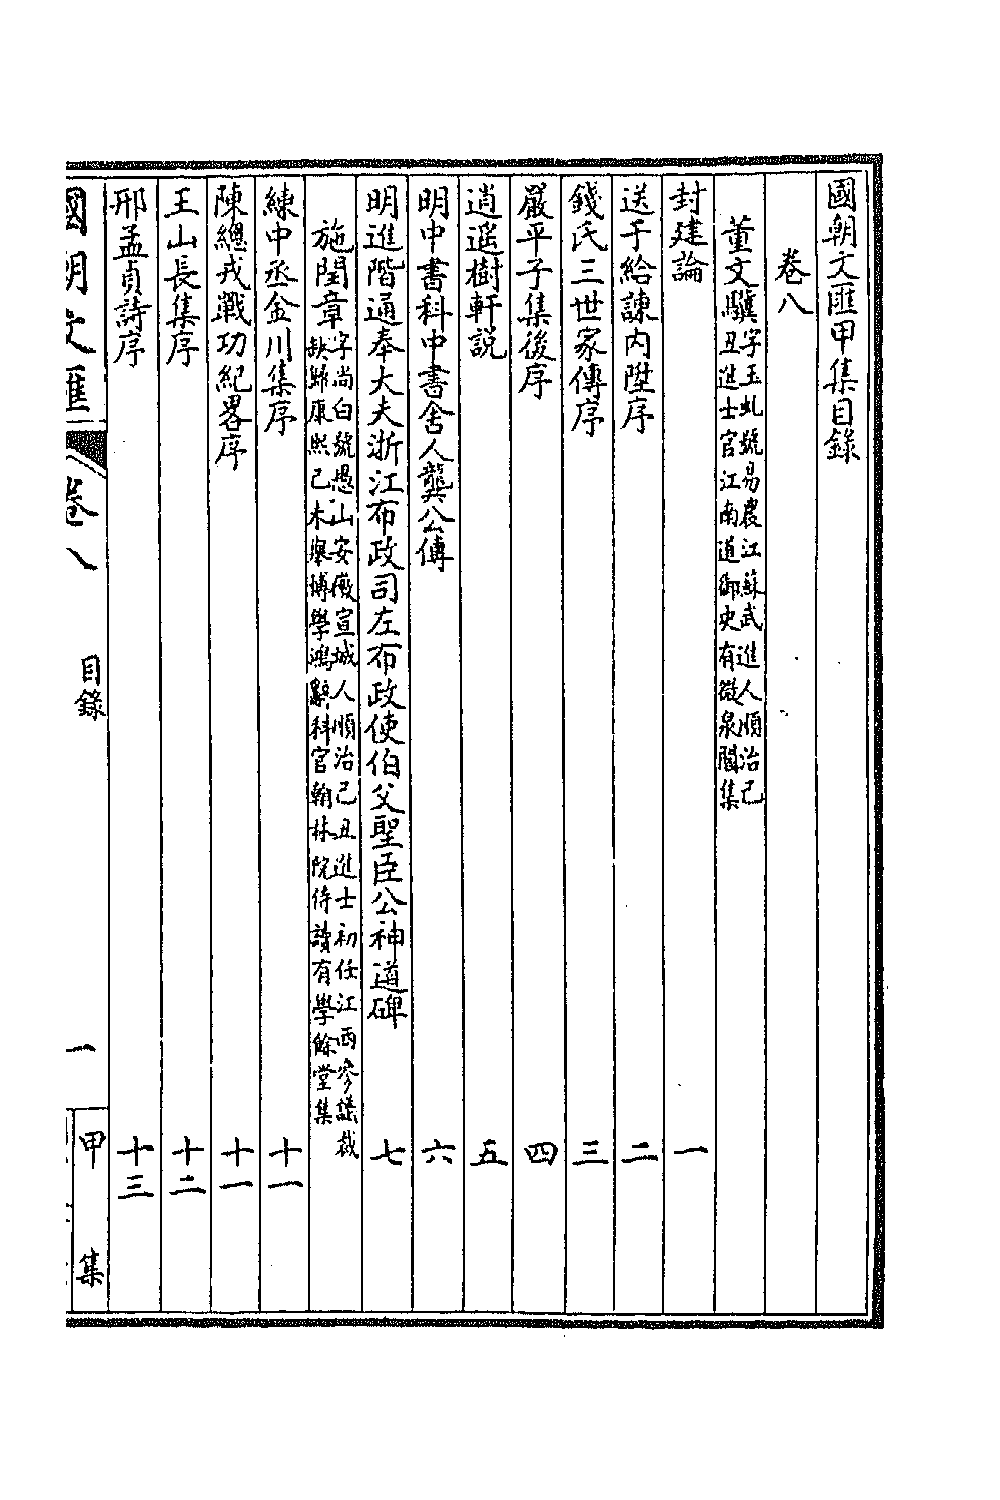 國朝文匯甲集目錄
卷八
董文驥字玉虬號易農江蘇武進人順治己
丑進士官江南道御史有微泉閣集
封建論 一
送于給諫内陞序 二
錢氏三世家傳序 三
嚴平子集後序 四
逍遙樹軒説 五
明中書科中書舍人龔公傳 六
明進階通奉大夫浙江布政司左布政使伯父聖臣公神道碑 七
施閏章字尚白號愚山安徽宣城人順治己丑進士初任江西參議裁
缺歸康熙己未舉博學鴻辭科官翰林院侍讀有學餘堂集
練中丞金川集序 十一
陳總戎戰功紀畧序 十一
王山長集序 十二
邢孟貞詩序 十三
國朝文匯 卷八 目錄 一 甲集